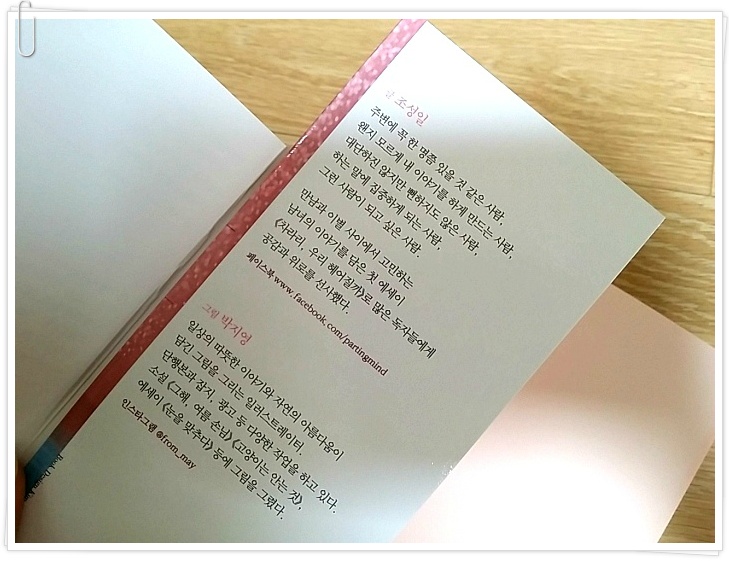 글 조성일
주변에 꼭 한 명쯤 있을 것 같은 사람,
왠지 모르게 내 이야기를 하게 만드는 사람,
대단하진 않지만 뻔하지도 않은 사람,
하는 말에 집중하게 되는 사람,
그런 사람이 되고 싶은 사람.
만남과 이별 사이에서 고민하는
남녀의 이야기를 담은 첫 에세이
《차라리, 우리 헤어질까》로 많은 독자들에게
공감과 위로를 선사했다.
페이스북 www.facebook.com/partingmind
그림 박지영
일상의 따뜻한 이야기와 자연의 아름다움이
담긴 그림을 그리는 일러스트레이터.
단행본과 잡지, 광고 등 다양한 작업을 하고 있다.
소설 《그해, 여름 손님》 《고양이는 안는 것》,
에세이 《눈을 맞추다》 등에 그림을 그렸다.
인스타그램 @from_may